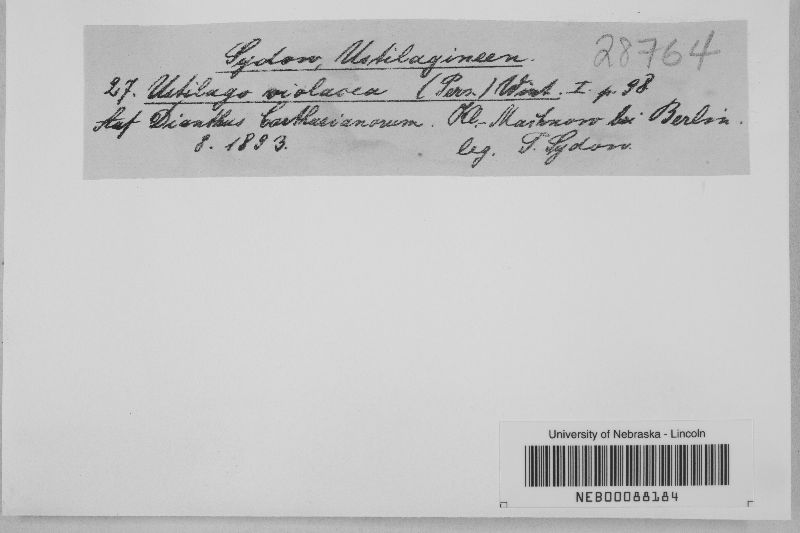 Sydow, Ustilagineen. 28764
27. Ustilago violacea (Pers.) Wint. I. p. 98
Auf Dianthus Carthusianorum. Kl.-Machnow bei Berlin.
8. 1893. leg. P. Sydow
University of Nebraska - Lincoln
NEB00088184